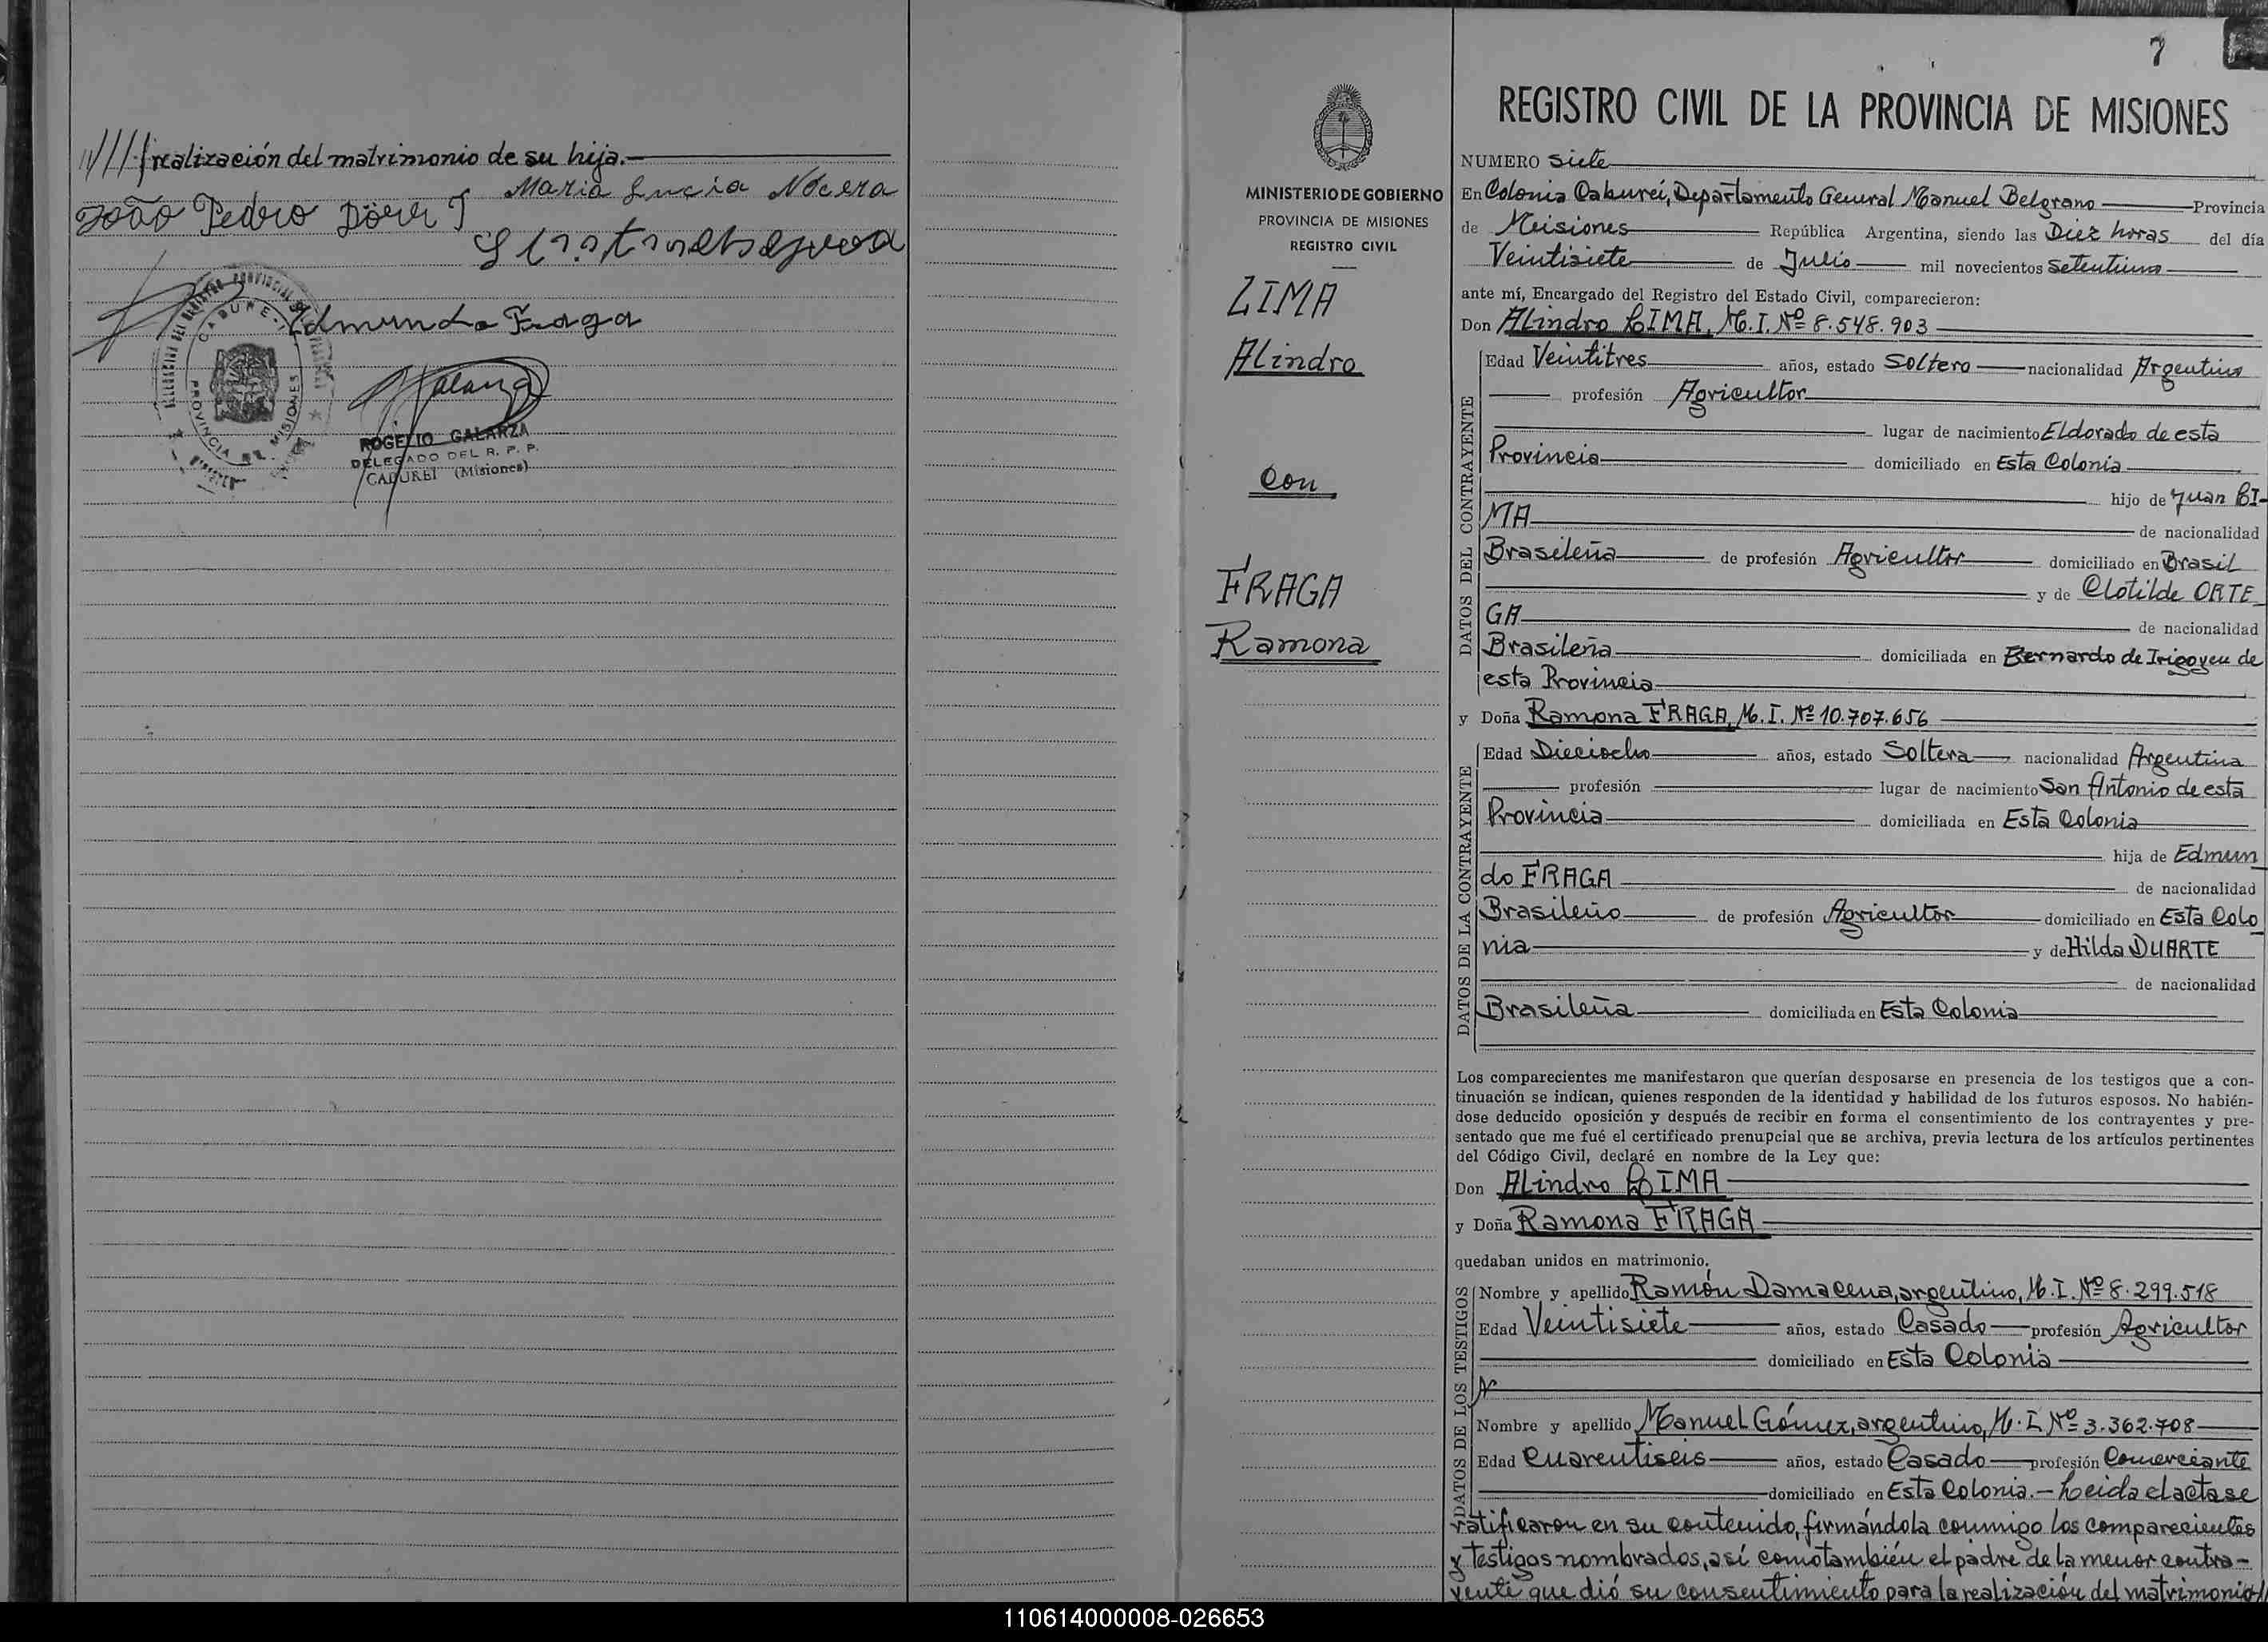 //// realización del matrimonio de su hija.-
João Pedro Dörr
Maria Lucia Nócera
Edmundo Fraga
CABURE-I
PROVINCIA DE MISIONES
ROGELIO GALARZA
DELEGADO DEL R. P. P.
CABUREI (Misiones)
MINISTERIO DE GOBIERNO
PROVINCIA DE MISIONES
REGISTRO CIVIL
LIMA
Alindro
Con
FRAGA
Ramona
7
REGISTRO CIVIL DE LA PROVINCIA DE MISIONES
NUMERO Siete
En Colonia Caburei, Departamento General Manuel Belgrano Provincia
de Misiones República Argentina, siendo las Diez horas del día
Veintisiete de Julio mil novecientos Setentiuno
ante mí, Encargado del Registro del Estado Civil, comparecieron:
Don Alindro LIMA, M. I. Nº 8.548.903
DATOS DEL CONTRAYENTE
Edad Veintitres años, estado Soltero nacionalidad Argentino
profesión Agricultor
lugar de nacimiento Eldorado de esta
Provincia domiciliado en Esta Colonia
hijo de Juan LI-
MA de nacionalidad
Brasileña de profesión Agricultor domiciliado en Brasil
y de Clotilde ORTE
GA de nacionalidad
Brasileña domiciliada en Bernardo de Irigoyen de
esta Provincia
y Doña Ramona FRAGA, M. I. Nº 10.707.656
DATOS DE LA CONTRAYENTE
Edad Dieciocho años, estado Soltera nacionalidad Argentina
profesión lugar de nacimiento San Antonio de esta
Provincia domiciliada en Esta Colonia
hija de Edmun
do FRAGA de nacionalidad
Brasileño de profesión Agricultor domiciliado en Esta Colo
nia y de Hilda DUARTE
de nacionalidad
Brasileña domiciliada en Esta Colonia
Los comparecientes me manifestaron que querían desposarse en presencia de los testigos que a con-
tinuación se indican, quienes responden de la identidad y habilidad de los futuros esposos. No habién-
dose deducido oposición y después de recibir en forma el consentimiento de los contrayentes y pre-
sentado que me fué el certificado prenupcial que se archiva, previa lectura de los artículos pertinentes
del Código Civil, declaré en nombre de la Ley que:
Don Alindro LIMA
y Doña Ramona FRAGA
quedaban unidos en matrimonio.
DATOS DE LOS TESTIGOS
Nombre y apellido Ramón Damacena, argentino, M. I. Nº 8.299.518
Edad Veintisiete años, estado Casado profesión Agricultor
domiciliado en Esta Colonia
Nombre y apellido Manuel Gómez, argentino, M. I. Nº 3.362.708
Edad Cuarentiseis años, estado Casado profesión Comerciante
domiciliado en Esta Colonia.- Leida el acta se
ratificaron en su contenido, firmándola conmigo los comparecientes
y testigos nombrados, así como también el padre de la menor contra-
yente que dió su consentimiento para la realización del matrimonio//
110614000008-026653